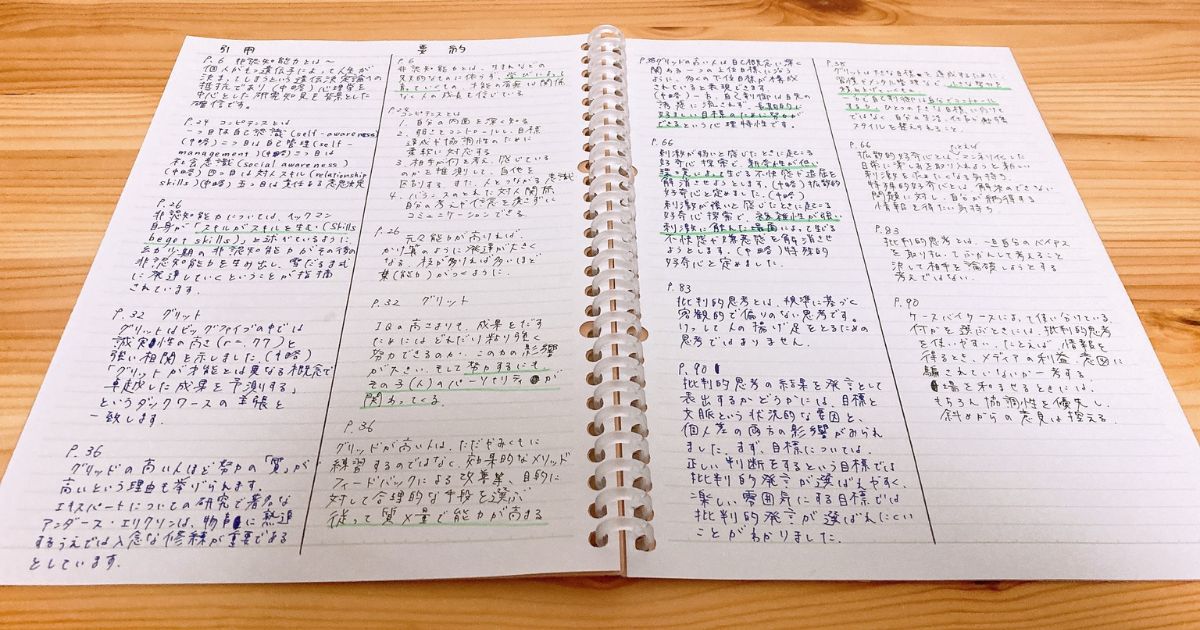 引用
P.6 非認知能力とは〜
個人がもつ遺伝子によって人生が
決まってしまうという遺伝決定論への
抵抗であり(中略)心理学を
中心とした研究知見を背景とした
確信です。
P.24 コンピテンスとは
一つ目は自己認識(self-awareness
(中略)二つ目は自己管理(self-
management)(中略)三つ目は
社会意識(social awareness)
(中略)四つ目は対人スキル(relationship
skills)(中略)五つ目は責任ある意思決定
P.26
非認知能力については、ヘックマン
自身が「スキルがスキルを生む(Skills
beget skills)」と述べているように
幼少期の非認知能力がその後の
非認知能力を生み出し、雪だるま式
に発達していくということが指摘
されています。
P.32 グリット
グリットはビッグファイブの中では
誠実性の高さ(r=.77)と
強い相関を示しました(中略)
「グリットが才能とは異なる概念で
卓越した成果を予測する」
というダックワースの主張と
一致します。
P.36
グリッドの高い人ほど努力の「質」が
高いという理由も挙げられます。
エキスパートについての研究で著名な
アンダース・エリクソンは、物事に熟達
するうえでは入念な修練が重要である
としています。
要約
P.6
非認知能力とは、生まれながらの
ものに依らず、学びによって
育っていくもの。才能の有無は関係
なく人の成長を信じている
P.24
コンピテンスとは
1. 自分の内面を深く知る
2. 弱さをコントロールし、目標
達成や協調性のために
柔軟に対応する
3. 相手が何を考え、感じている
のかを推測して、自他を
区別する。また、人とつながる意識
4. バランスのとれた対人関係
自分の考えや信念を曲げずに
コミュニケーションできる
P.26
元々能力が高ければ、
かけ算のように発達が大きく
なる。枝が多ければ多いほど
葉(能力)がつくように。
P.32 グリット
IQの高さよりも、成果をだす
ためにはどれだけ粘り強く
努力できるのか、この力の影響
が大きい。そして努力するにも
その子(人)のパーソナリティが
関わってくる。
P.36
グリッドが高い人は、ただやみくもに
練習するのではなく、効果的なメソッド
フィードバックによる改善等、目的に
対して合理的な手段を選ぶ
従って質×量で能力が高まる
P.38 グリッドの高い人は自己概念に深く
関わる一つの上位目標に沿う
ように、多くの下位目標が構成
されていると表現できます。
(中略)一方、自己制御は目先の
誘惑に流されず、長期的に
好ましい目標のために努力が
できるという心理特性です。
P.66
刺激が弱いと感じたときに起こる
好奇心探索で、新奇性が低い
不快感や退屈を
解消させようとします。(中略)拡散的
好奇心と定めました。(中略)
刺激が強いと感じたときに起こる
好奇心探索で、複雑性が強い
刺激に触れた場面によって生じる
不快感や嫌悪感を解消させ
ようとします。(中略)特殊的
好奇心と定めました。
P.83
批判的思考とは、規準に基づく
客観的で偏りのない思考です。
けっして人の揚げ足をとるための
思考ではありません。
P.90
批判的思考の結果を発言として
表出するかどうかには、目標と
文脈という状況的な要因と
個人差の両方の影響がみられ
ました。まず、目標については、
正しい判断をするという目標では
批判的発言が選ばれやすく、
楽しい雰囲気にする目標では
批判的発言が選ばれにくい
ことがわかりました。
P.38
グリットは大きな目標を達成するために
スタイルを整えられること。
P.66
拡散的好奇心とは、マンネリ化した
日常に楽しみを取り入れようと新しい
刺激を求めたくなる気持ち
特殊的好奇心とは、解決のできない
問題に対し、自分が納得する
情報を得たい気持ち
P.83
批判的思考とは、一旦自分のバイヤス
を取り払ってぶがんして考えること
決して相手を論破しようとする
考えではない。
P.90
ケースバイケースによって使い分けている。
何かを選ぶときには、批判的思考
を使いやすい。たとえば、情報を
得るとき、メディアの利益、意図に
騙されていないか一考する。
場を和ませるときには、
もちろん協調性を優先し、
斜めからの意見は控える。